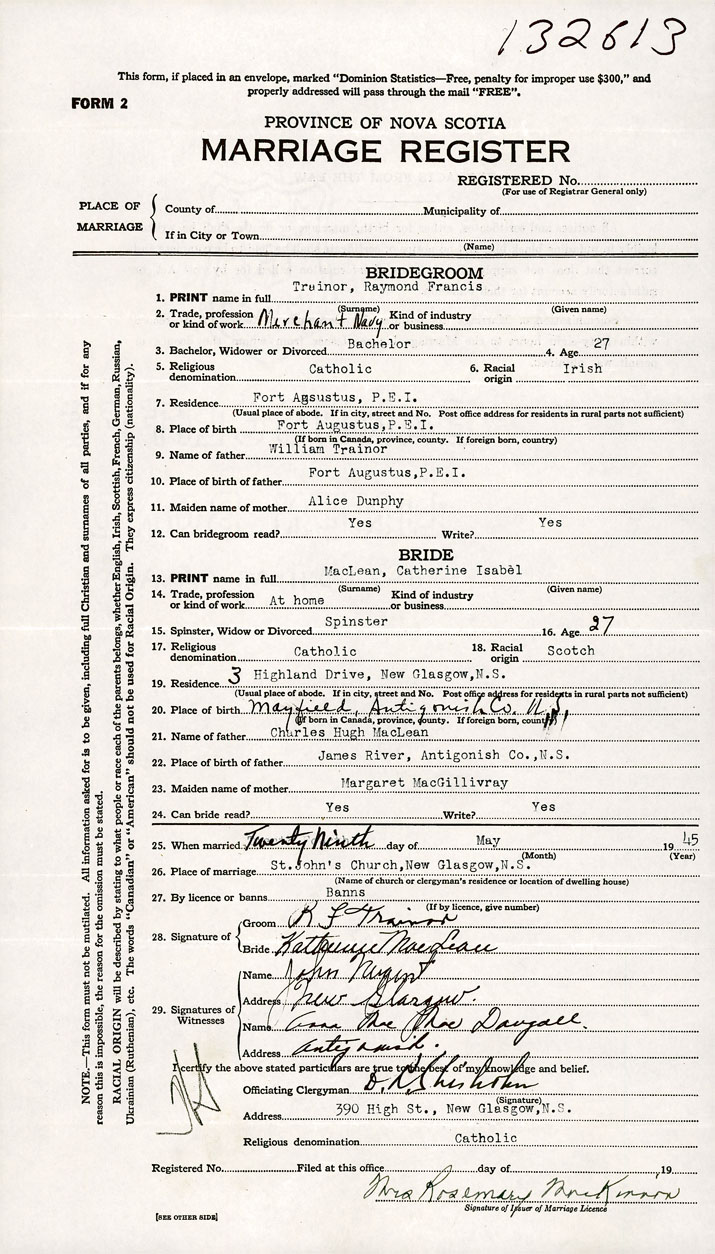 132613
This form, if placed in an envelope, marked "Dominion Statistics—Free, penalty for improper use $300," and
properly addressed will pass through the mail "FREE".
FORM 2
PROVINCE OF NOVA SCOTIA
MARRIAGE REGISTER
REGISTERED No.
(For use of Registrar General only)
PLACE OF MARRIAGE
County of Municipality of
If in City or Town
(Name)
BRIDEGROOM
Trainor, Raymond Francis
1. PRINT name in full
(Surname) (Given name)
2. Trade, profession or kind of work Merchant Navy Kind of industry or business
3. Bachelor, Widower or Divorced Bachelor 4. Age 27
5. Religious denomination Catholic 6. Racial origin Irish
7. Residence Fort Agsustus, P.E.I.
(Usual place of abode. If in city, street and No. Post office address for residents in rural parts not sufficient)
8. Place of birth Fort Augustus,P.E.I.
(If born in Canada, province, county. If foreign born, country)
9. Name of father William Trainor
10. Place of birth of father Fort Augustus,P.E.I.
11. Maiden name of mother Alice Dunphy
12. Can bridegroom read? Yes Write? Yes
BRIDE
13. PRINT name in full MacLean, Catherine Isabèl
(Surname) (Given name)
14. Trade, profession or kind of work At home Kind of industry or business
15. Spinster, Widow or Divorced Spinster 16. Age 27
17. Religious denomination Catholic 18. Racial origin Scotch
19. Residence 3 Highland Drive, New Glasgow,N.S.
(Usual place of abode. If in city, street and No. Post office address for residents in rural parts not sufficient)
20. Place of birth Mayfield, Antigonish Co. N.S.
(If born in Canada, province, county. If foreign born, country)
21. Name of father Charles Hugh MacLean
22. Place of birth of father James River, Antigonish Co.,N.S.
23. Maiden name of mother Margaret MacGillivray
24. Can bride read? Yes Write? Yes
25. When married Twenty Ninth day of May 19 45
(Month) (Year)
26. Place of marriage St.John's Church,New Glasgow,N.S.
(Name of church or clergyman's residence or location of dwelling house)
27. By licence or banns Banns
(If by licence, give number)
28. Signature of
Groom R F Trainor
Bride Katherine MacLean
29. Signatures of Witnesses
Name John Nugent
Address New Glasgow.
Name Anna Mae MacDougall.
Address Antigonish.
I certify the above stated particulars are true to the best of my knowledge and belief.
Officiating Clergyman D. R. Chisholm
(Signature)
Address 390 High St., New Glasgow,N.S.
Religious denomination Catholic
Registered No. Filed at this office day of ,19
Mrs Rosemary MacKinnon
Signature of Issuer of Marriage Licence
[SEE OTHER SIDE]
NOTE.—This form must not be mutilated. All information asked for is to be given, including full Christian and surnames of all parties, and if for any
reason this is impossible, the reason for the omission must be stated.
RACIAL ORIGIN will be described by stating to what people or race each of the parents belongs, whether English, Irish, Scottish, French, German, Russian,
Ukrainian (Ruthenian), etc. The words "Canadian" or "American" should not be used for Racial Origin. They express citizenship (nationality).